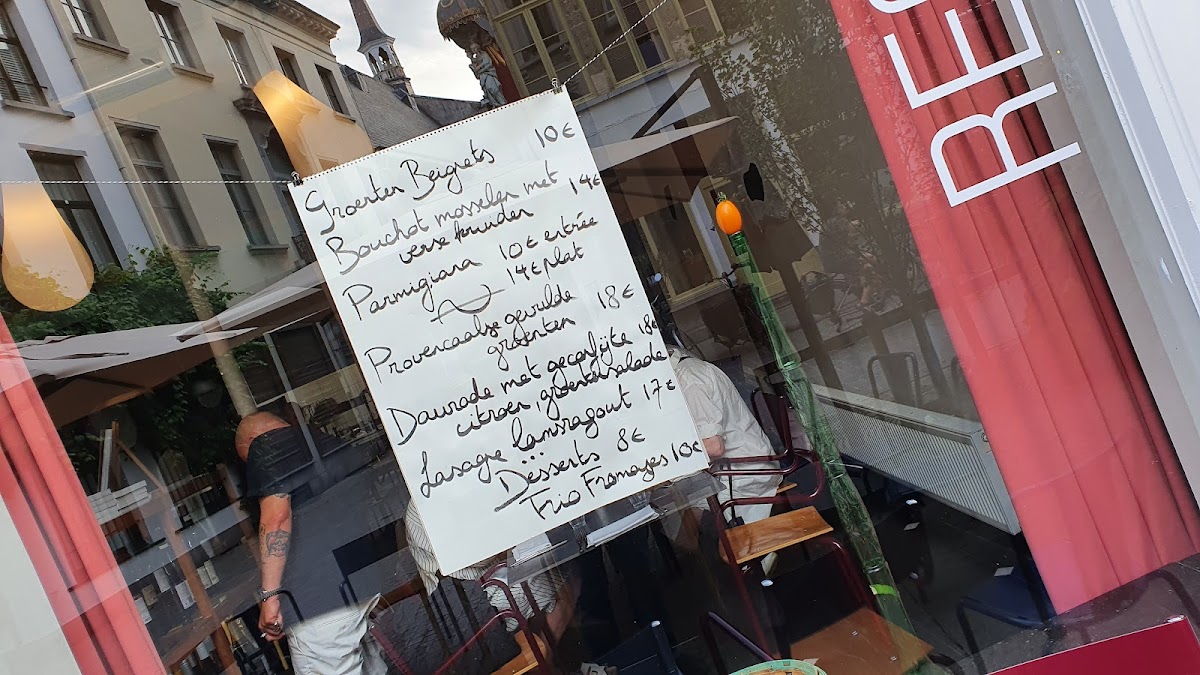 Groenten Beigrets 10€
Bouchot mosselen met 14€
verse kruiden
Parmigiana 10€ entrée
14€ plat
Provencaalse gevulde 18€
groenten
Daurade met geconfijte 18€
citroen, groentensalade
Lasagne lamsragout 17€
Desserts 8€
Trio Fromages 10€
RES